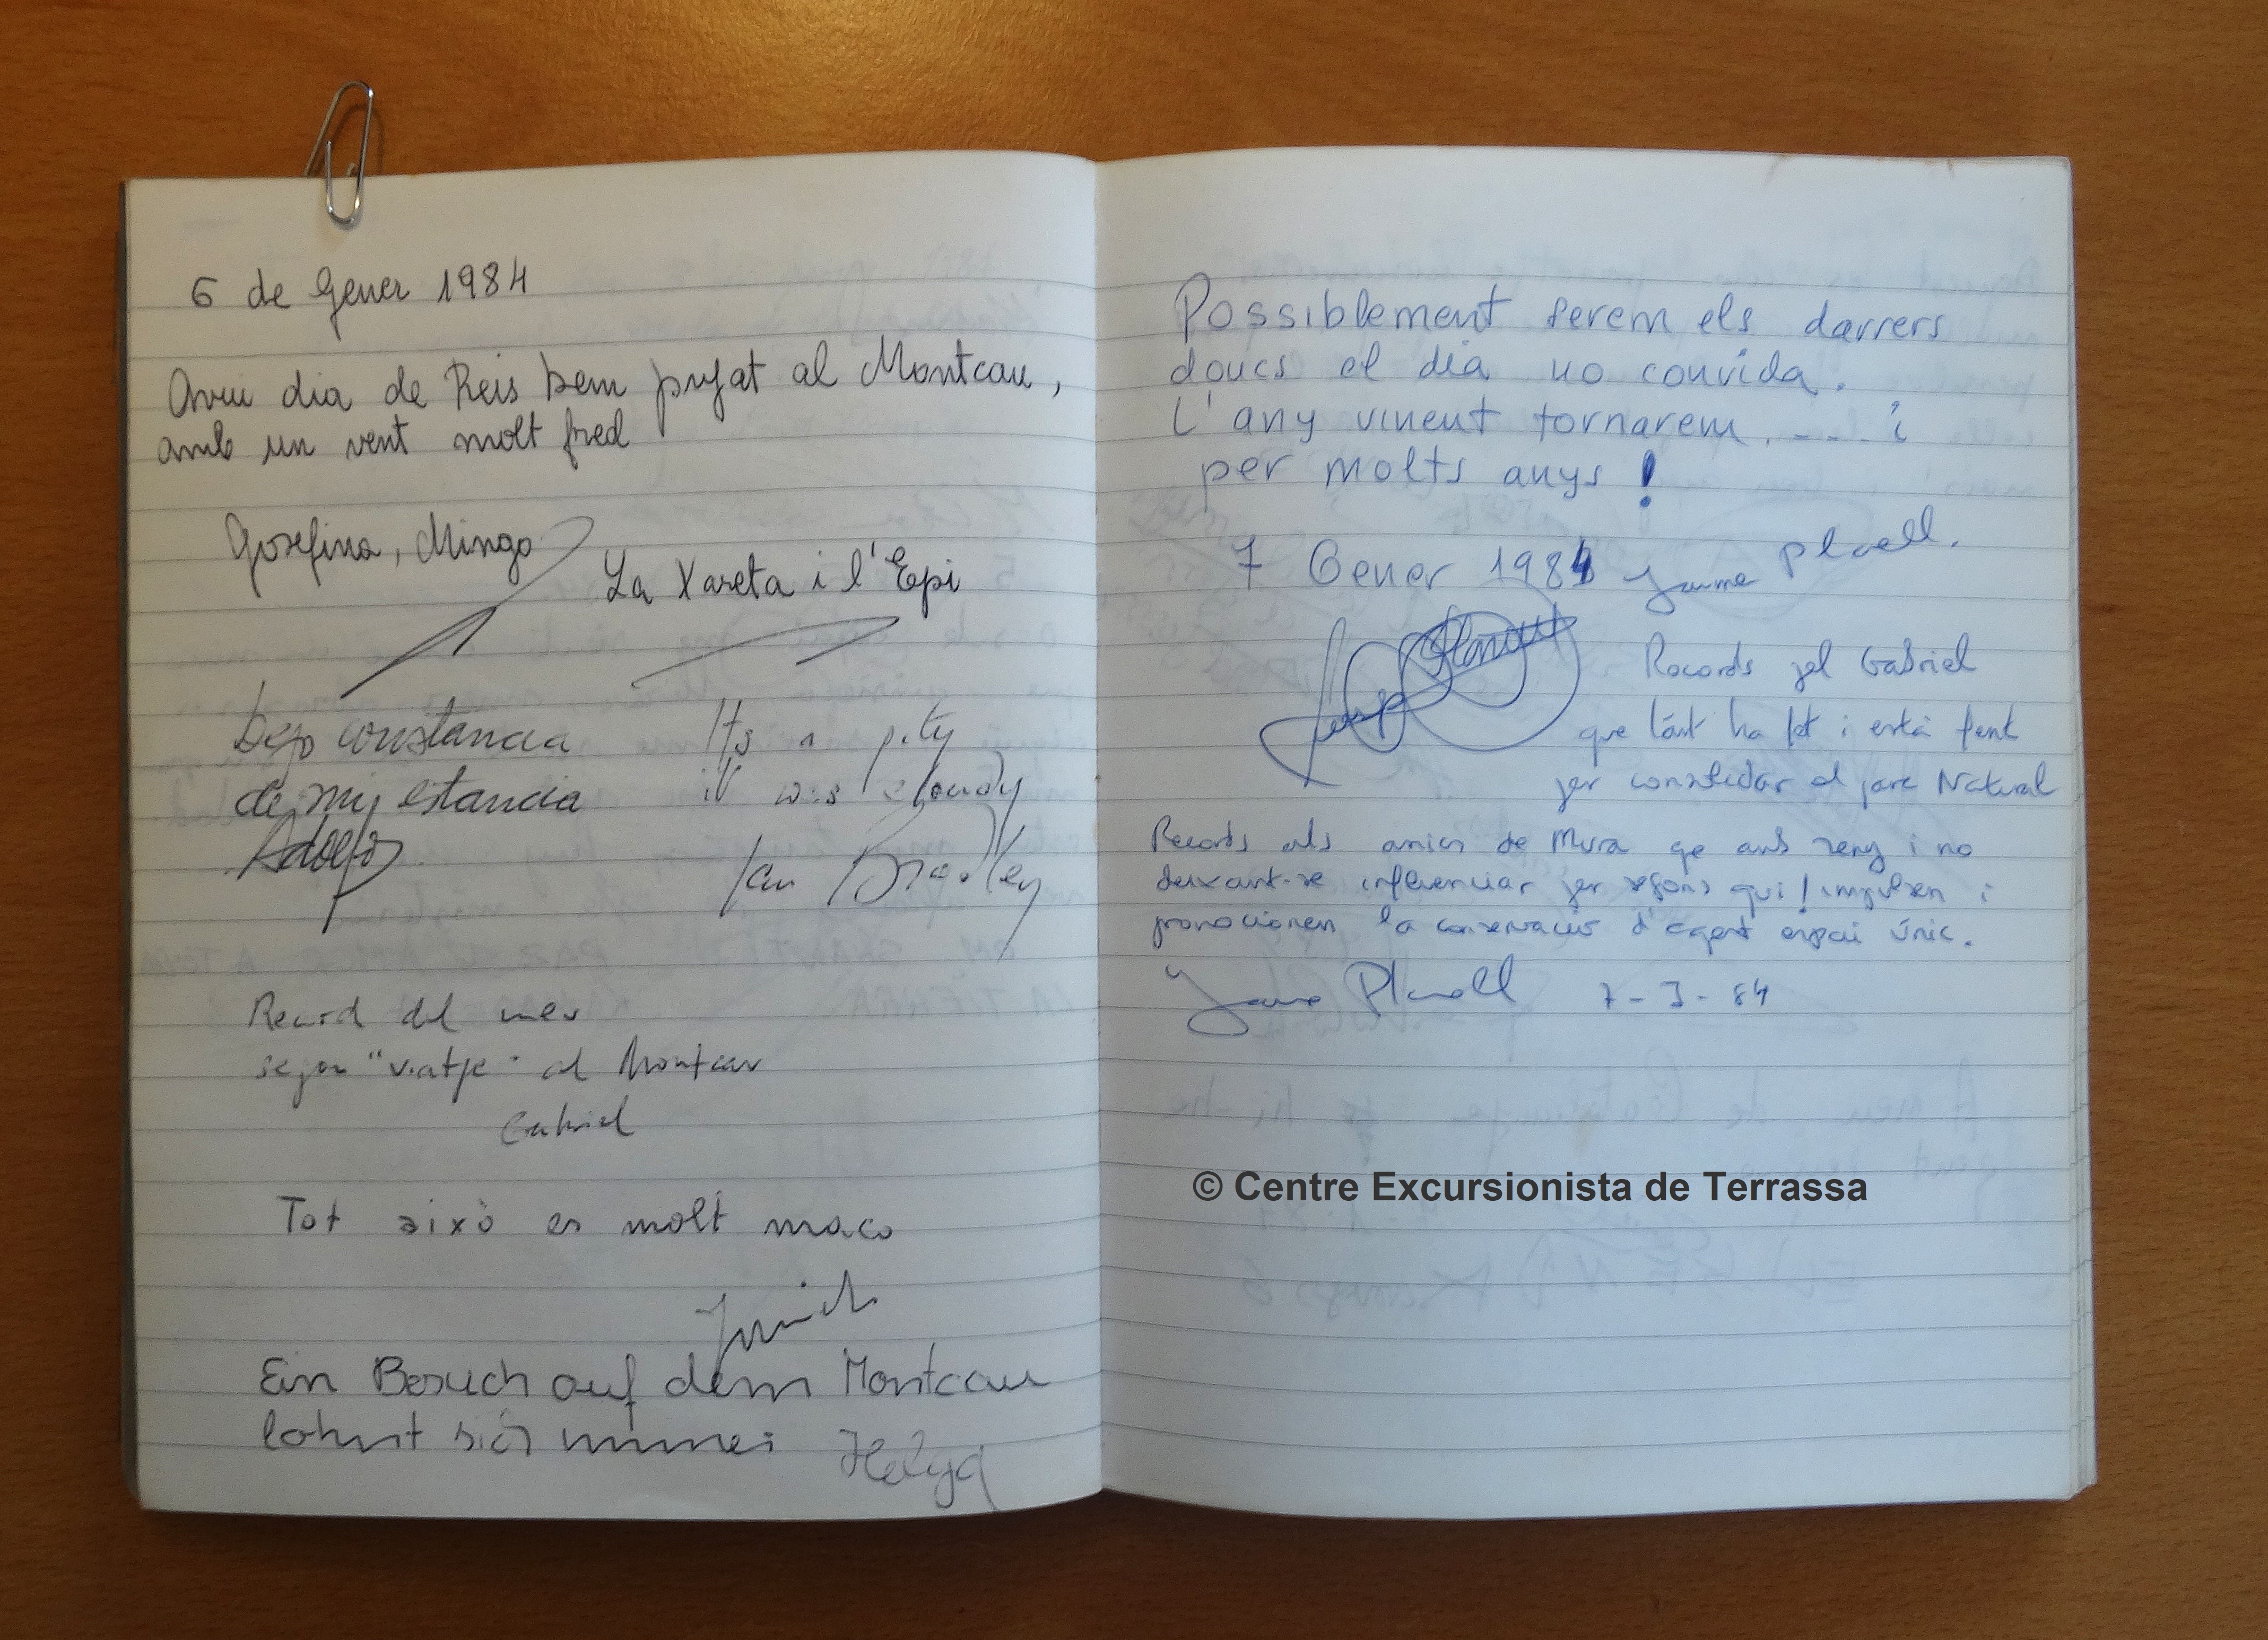 6 de Gener 1984
Avui dia de Reis hem pujat al Montcau,
amb un vent molt fred
Josefina, Mingo
La Xareta i l'Epi
Dejo constancia
de mi estancia
Adolfo
Its a pity
it was cloudy
Ian Bradley
Record del meu
segon "viatje" al Montcau
Gabriel
Tot això es molt maco
Ein Besuch auf dem Montcau
lohnt sich immer Helga
Possiblement serem els darrers
doncs el dia no convida.
L'any vinent tornarem. - - - i
per molts anys !
7 Gener 1984 Jaume Planell.
Josep
Records pel Gabriel
que tánt ha fet i està fent
per consolidar el parc Natural
Records als amics de Mura qe amb seny i no
deixant-se influenciar per segons qui ! impulsen i
promocionen la conservació d'aqest espai únic.
Jaume Planell 7-I-84
© Centre Excursionista de Terrassa